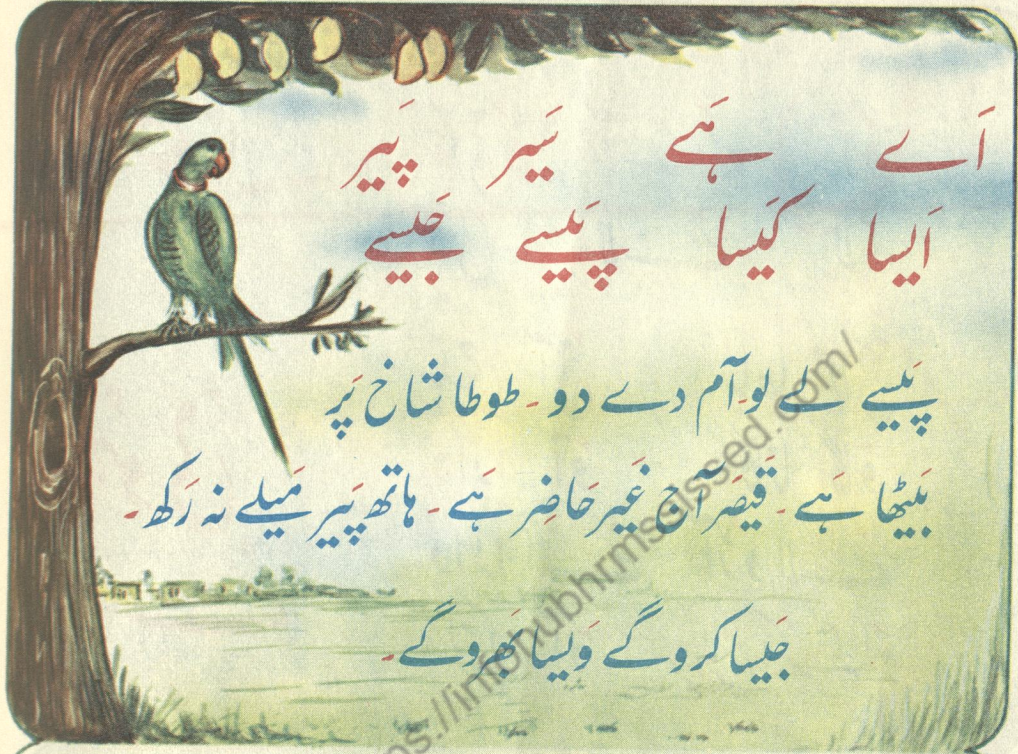 اَے ہَے سَیر پَیر
اَیسا کَیسا پَیسے جَیسے
پَیسے لے لو۔ آم دے دو۔ طوطا شاخ پَر
بَیٹھا ہَے۔ قَیصَر آج غَیر حَاضِر ہَے۔ ہاتھ پَیر مَیلے نہ رَکھ۔
جَیسا کروگے وَیسا بھروگے۔